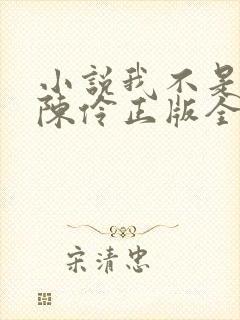 小説我不是
陳伶正版全
宋清忠